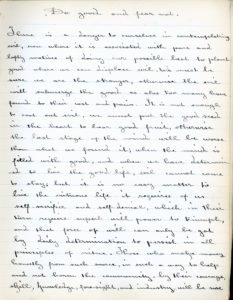 Do good and fear not.
There is a danger to ourselves in contemplating
evil, even where it is associated with pure and
lofty motives of doing our possible best to plant
good where we can displace evil. We must be
sure we are the stronger, otherwise the evil
will submerge the good as also too many have
found to their cost and pain. It is not enough
to root out evil, we must put the good seed
in the heart to bear good fruit, otherwise
the last stage of the mind will be worse
than what we found it; when the mind is
filled with good, and when we have determin
ed to live the good life, evil cannot come
to stay; but it is no easy matter to
live the virtuous life it requires of us
self sacrifice and self denial, which in their
turn require superb will power to triumph,
and that force of will can only be got
by daily determination to persist in all
principles of virtue. Those who make money
honestly from such source, in such a way to help
and not harm the community, by their courage
skill, knowledge, foresight, and industry will be